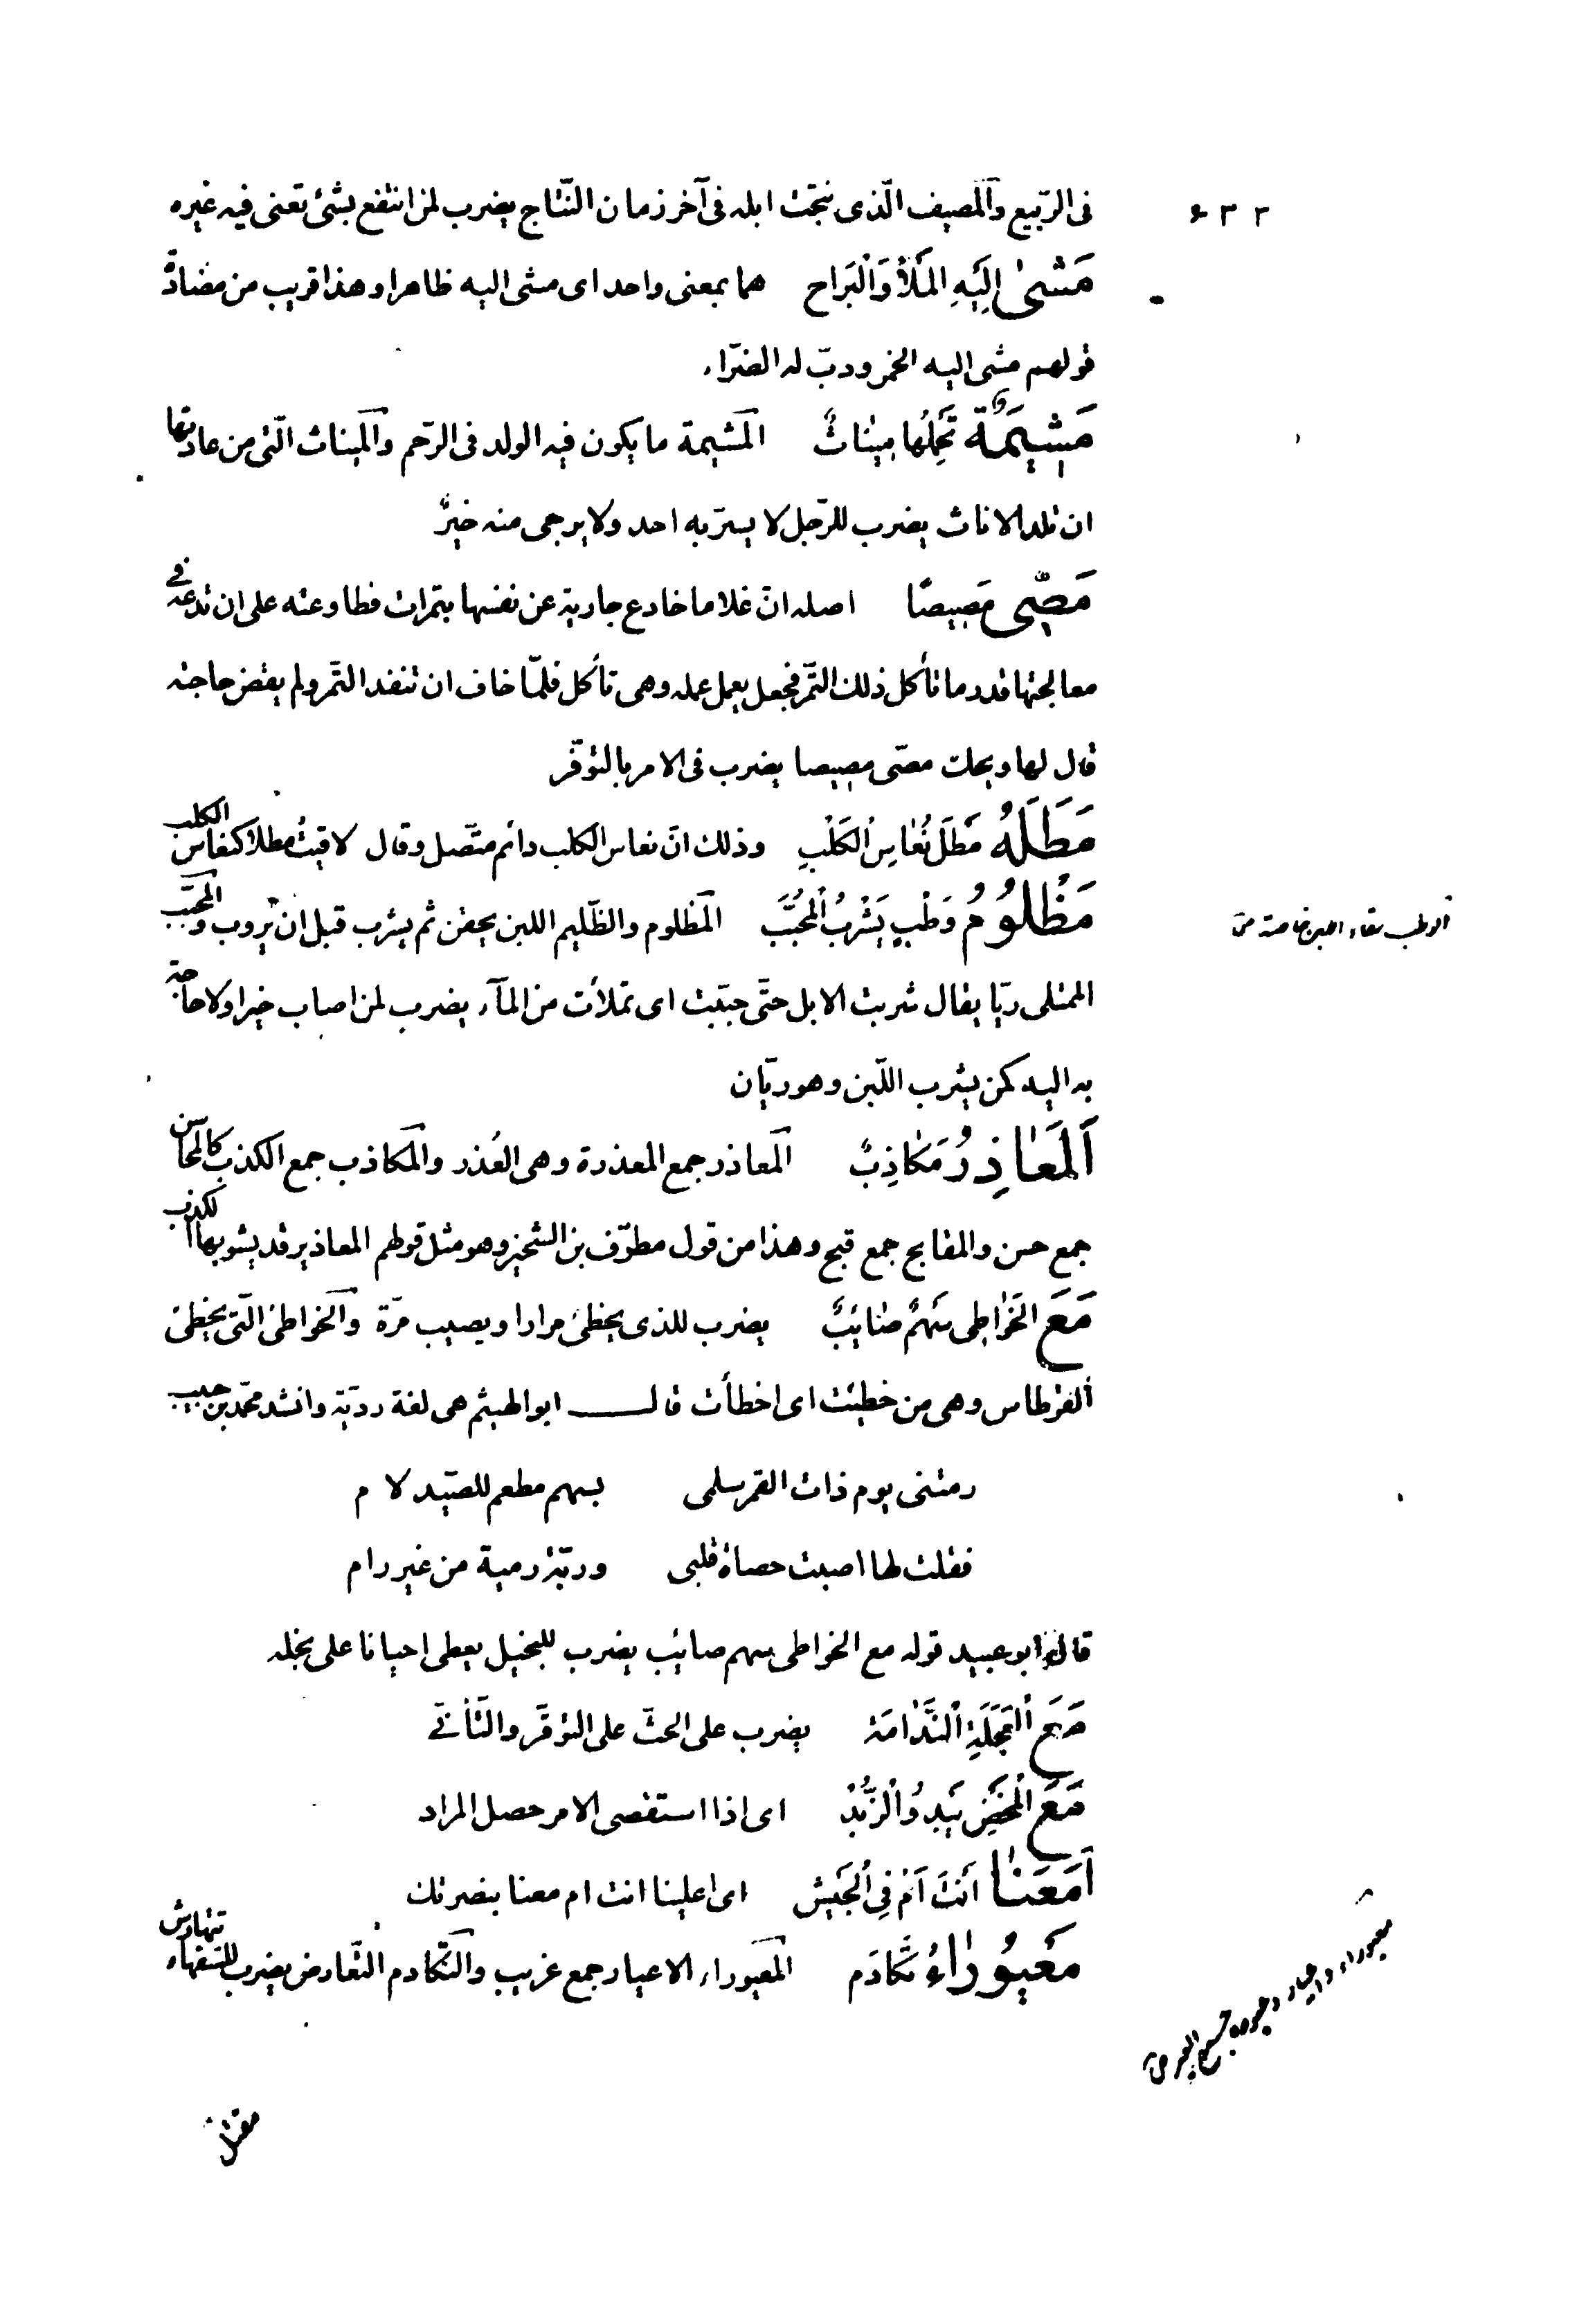 ٦٣٢
فى الرّبيع والمصيف الّذى نتجت ابله فى آخر زمان النّتاج يضرب لمن انتفع بشئ تعنى فيه غيره
مَشىٰ اِلَيْهِ المَلَأُ وَالْبَراح هما بمعنى واحد اى مشى اليه ظاهرا وهذا قريب من مضادّ
قولهم مشى اليه الخمر ودبّ له الضرّاء
مَشيمَةٌ تَحْمِلُها مِيناثٌ المشيمة ما يكون فيه الولد فى الرّحم والميناث الّتى من عادتها
ان تلد الاناث يضرب للرّجل لا يسرّ به احد ولا يرجى منه خيرٌ
مَصّى مَصيصًا اصله انّ غلاما خادع جارية عن نفسها بتمرات فطاوعته على ان تدعه فى
معالجتها قدر ما تأكل ذلك التّمر فجعل يعمل عمله وهى تأكل فلمّا خاف ان تنفد التّمر ولم يقض حاجته
قال لها ويحك مصّى مصيصا يضرب فى الامر بالتوقّر
مَطَلَهُ مَطَلَ نُعٰاسِ الْكَلْبِ وذلك انّ نعاس الكلب دائم متّصل وقال لاقيتُ مطلا كنعاس الكلب
مَظْلُومُ وَطْبٍ يَشْرَبُ الْمُحَبَّبَ المظلوم والظّليم اللبن يحقن ثم يشرب قبل ان يروب والمحبّب
الوطب سقاء اللبن خاصة ص
الممتلى ريّا يقال شربت الابل حتّى حبّبت اى تملأت من المآء يضرب لمن اصاب خيرا ولا حاجة
به اليه كمن يشرب اللّبن وهو ريّان
اَلْمَعٰاذِرُ مَكٰاذِبٌ المعاذر جمع المعذرة وهى العُذر والمكاذب جمع الكذب كالمحاسن
جمع حسن والمقابح جمع قبح وهذا من قول مطرّف بن الشخير وهو مثل قولهم المعاذير قد يشوبها الكذب
مَعَ الخَوٰاطِى سَهْمٌ صٰائِبٌ يضرب للذى يخطئ مرارا ويصيب مرّة والخواطئ الّتى يخطئ
القرطاس وهى من خطئت اى اخطأت قال ابو الهيثم هى لغة رديّة وانشد محمّد بن حبيب
رمتنى يوم ذات القمر سلمى بسهم مطعم للصّيد لام
فقلت لها اصبت حصاة قلبى وربّت رمية من غير رام
قال ابو عبيد قوله مع الخواطى سهم صائب يضرب للبخيل يعطى احيانا على بخله
مَعَ الْعَجَلَةِ النَّدٰامَة يضرب على الحثّ على التوقّر والتّأنّى
مَعَ الْمَخْضِ يَبْدُو الْزُبْدُ اى اذا استقصى الامر حصل المراد
اَمَعَنٰا اَنْتَ اَمْ فِى الْجَيْش اى اعلينا انت ام معنا بنصرتك
مَعْيُورٰاءُ تَكٰادَم المعيوراء الاعيار جمع غريب والتّكادم التّعارض يضرب للسّفهاء تتهارش